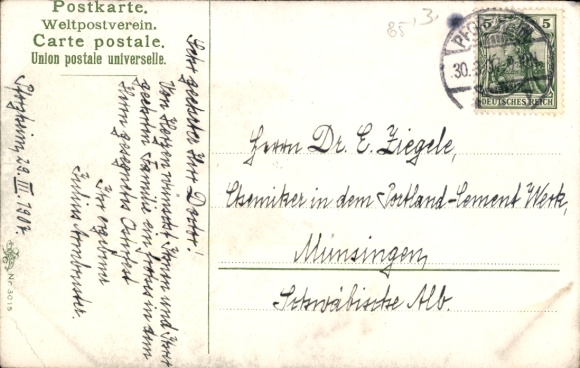 Postkarte.
Weltpostverein.
Carte postale.
Union postale universelle.
85.3.
PFORZHEIM
30.3.
5 5
DEUTSCHES REICH
Pforzheim, 29. III. 1907.
Sehr geehrter Herr Doctor!
Von Herzen wünscht Ihnen und Ihrer
geehrten Familie ein frohes in dem
Herrn gesegnetes Osterfest
Ihr ergebener
Julius Armbruster.
Herrn Dr. E. Ziegele,
Chemiker in dem Portland-Cement Werk,
Münsingen,
Schwäbische Alb.
Nr. 3015